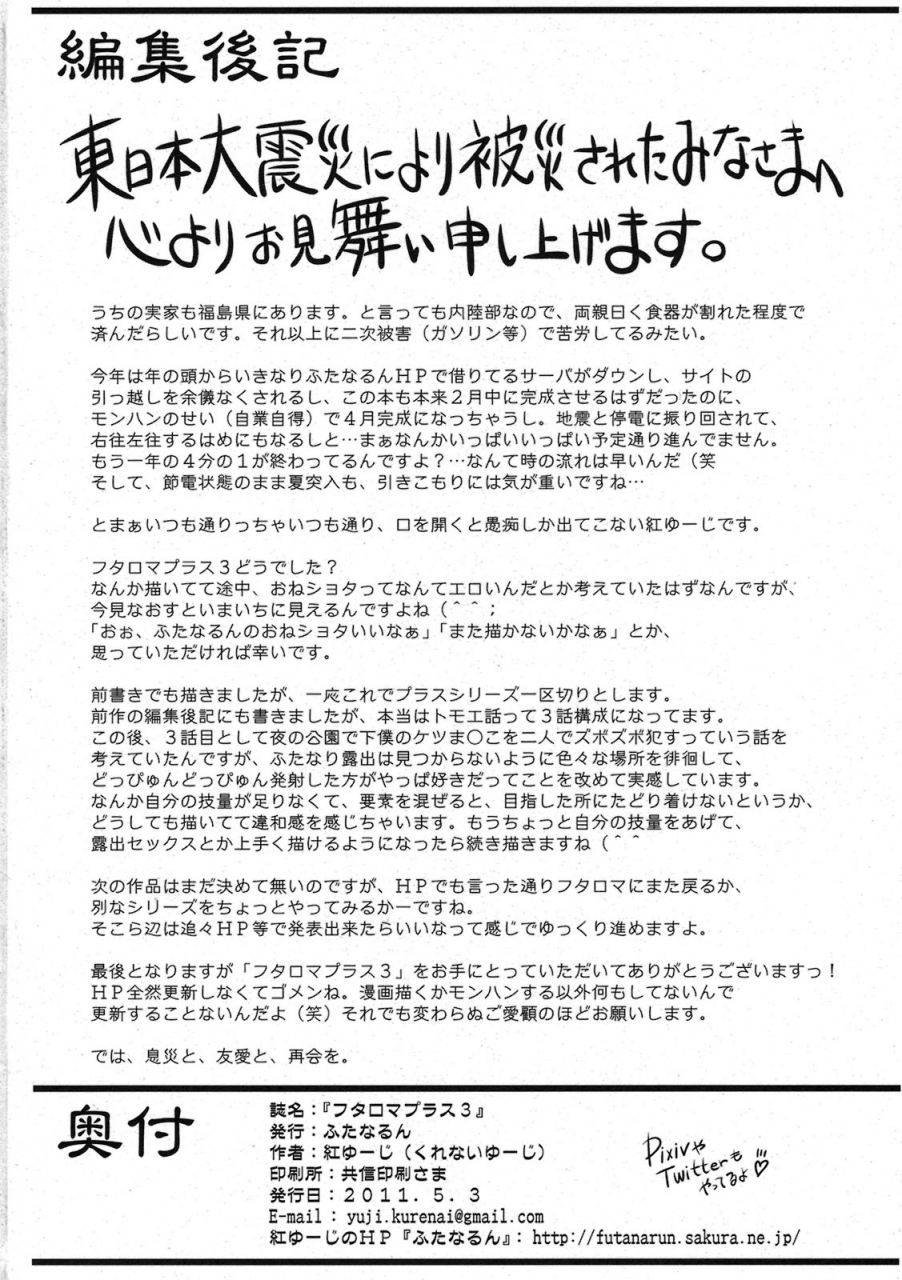 編集後記
東日本大震災により被災されたみなさまへ
心よりお見舞い申し上げます。
うちの実家も福島県にあります。と言っても内陸部なので、両親曰く食器が割れた程度で
済んだらしいです。それ以上に二次被害（ガソリン等）で苦労してるみたい。
今年は年の頭からいきなりふたなるんＨＰで借りてるサーバがダウンし、サイトの
引っ越しを余儀なくされるし、この本も本来２月中に完成させるはずだったのに、
モンハンのせい（自業自得）で４月完成になっちゃうし。地震と停電に振り回されて、
右往左往するはめにもなるしと…まぁなんかいっぱいいっぱい予定通り進んでません。
もう一年の４分の１が終わってるんですよ？…なんて時の流れは早いんだ（笑
そして、節電状態のまま夏突入も、引きこもりには気が重いですね…
とまぁいつも通りっちゃいつも通り、口を開くと愚痴しか出てこない紅ゆーじです。
フタロマプラス３どうでした？
なんか描いてて途中、おねショタってなんてエロいんだとか考えていたはずなんですが、
今見なおすといまいちに見えるんですよね（＾＾；
「おぉ、ふたなるんのおねショタいいなぁ」「また描かないかなぁ」とか、
思っていただければ幸いです。
前書きでも描きましたが、一応これでプラスシリーズ一区切りとします。
前作の編集後記にも書きましたが、本当はトモエ話って３話構成になってます。
この後、３話目として夜の公園で下僕のケツま〇こを二人でズボズボ犯すっていう話を
考えていたんですが、ふたなり露出は見つからないように色々な場所を徘徊して、
どっぴゅんどっぴゅん発射した方がやっぱ好きだってことを改めて実感しています。
なんか自分の技量が足りなくて、要素を混ぜると、目指した所にたどり着けないというか、
どうしても描いてて違和感を感じちゃいます。もうちょっと自分の技量をあげて、
露出セックスとか上手く描けるようになったら続き描きますね（＾＾
次の作品はまだ決めて無いのですが、ＨＰでも言った通りフタロマにまた戻るか、
別なシリーズをちょっとやってみるかーですね。
そこら辺は追々ＨＰ等で発表出来たらいいなって感じでゆっくり進めますよ。
最後となりますが「フタロマプラス３」をお手にとっていただいてありがとうございますっ！
ＨＰ全然更新しなくてゴメンね。漫画描くかモンハンする以外何もしてないんで
更新することないんだよ（笑）それでも変わらぬご愛顧のほどお願いします。
では、息災と、友愛と、再会を。
奥付
誌名：『フタロマプラス３』
発行：ふたなるん
作者：紅ゆーじ（くれないゆーじ）
印刷所：共信印刷さま
発行日：２０１１．５．３
E-mail : yuji.kurenai@gmail.com
紅ゆーじのＨＰ『ふたなるん』: http://futanarun.sakura.ne.jp/
Pixivや
Twitterも
やってるよ♡